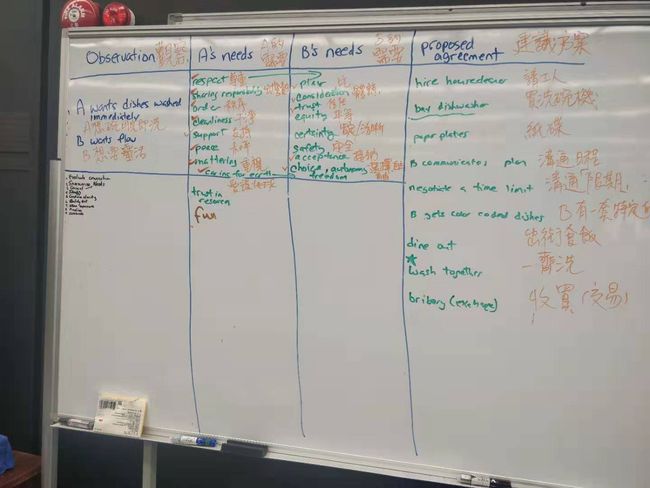 Observation 觀察
A wants dishes washed
immediately
B wants flow
B 想要靈活
A's needs A的
需要
respect 尊重
sharing responsibility
order 秩序
cleanliness 干淨
support 支持
peace 和平
mattering 重視
caring for earth
trust in
research
fun
B's needs B的
需要
play 玩
consideration
trust 信任
equity 平等
certainty
safety 安全
acceptance 接納
choice, autonomy 選擇
freedom
proposed
agreement 建議方案
hire housekeeper 請工人
buy dishwasher 買洗碗機
paper plates 紙碟
B communicates plan 溝通日程
negotiate a time limit 溝通「限期」
B gets color coded dishes B有一套特定
dine out 出街食飯
wash together 一齊洗
bribery (exchange) 收買(交易)